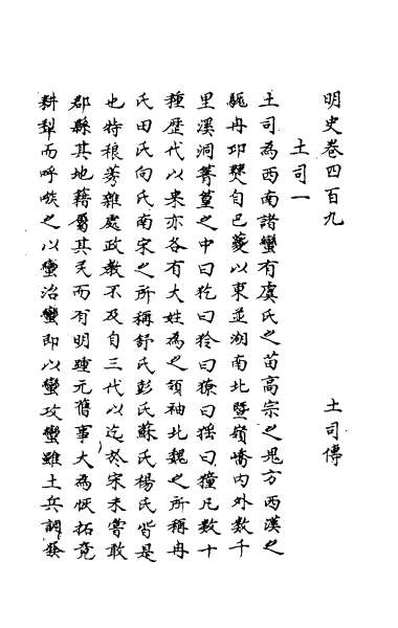 明史卷四百九 土司傳
土司一
土司為西南諸蠻有虞氏之苗高宗之鬼方西漢之
駹冉邛僰自巴夔以東並湖南北暨嶺嶠內外數千
里溪洞箐篁之中曰犵曰狑曰獠曰猺曰獞凡數十
種歷代以來亦各有大姓為之領袖北魏之所稱冉
氏田氏向氏南宋之所稱舒氏彭氏蘇氏楊氏皆是
也特稂莠雜處政教不及自三代以迄於宋未嘗敢
郡縣其地藉屬其民而有明踵元舊事大為恢拓竟
耕犁而呼啖之以蠻治蠻即以蠻攻蠻雖土兵調發